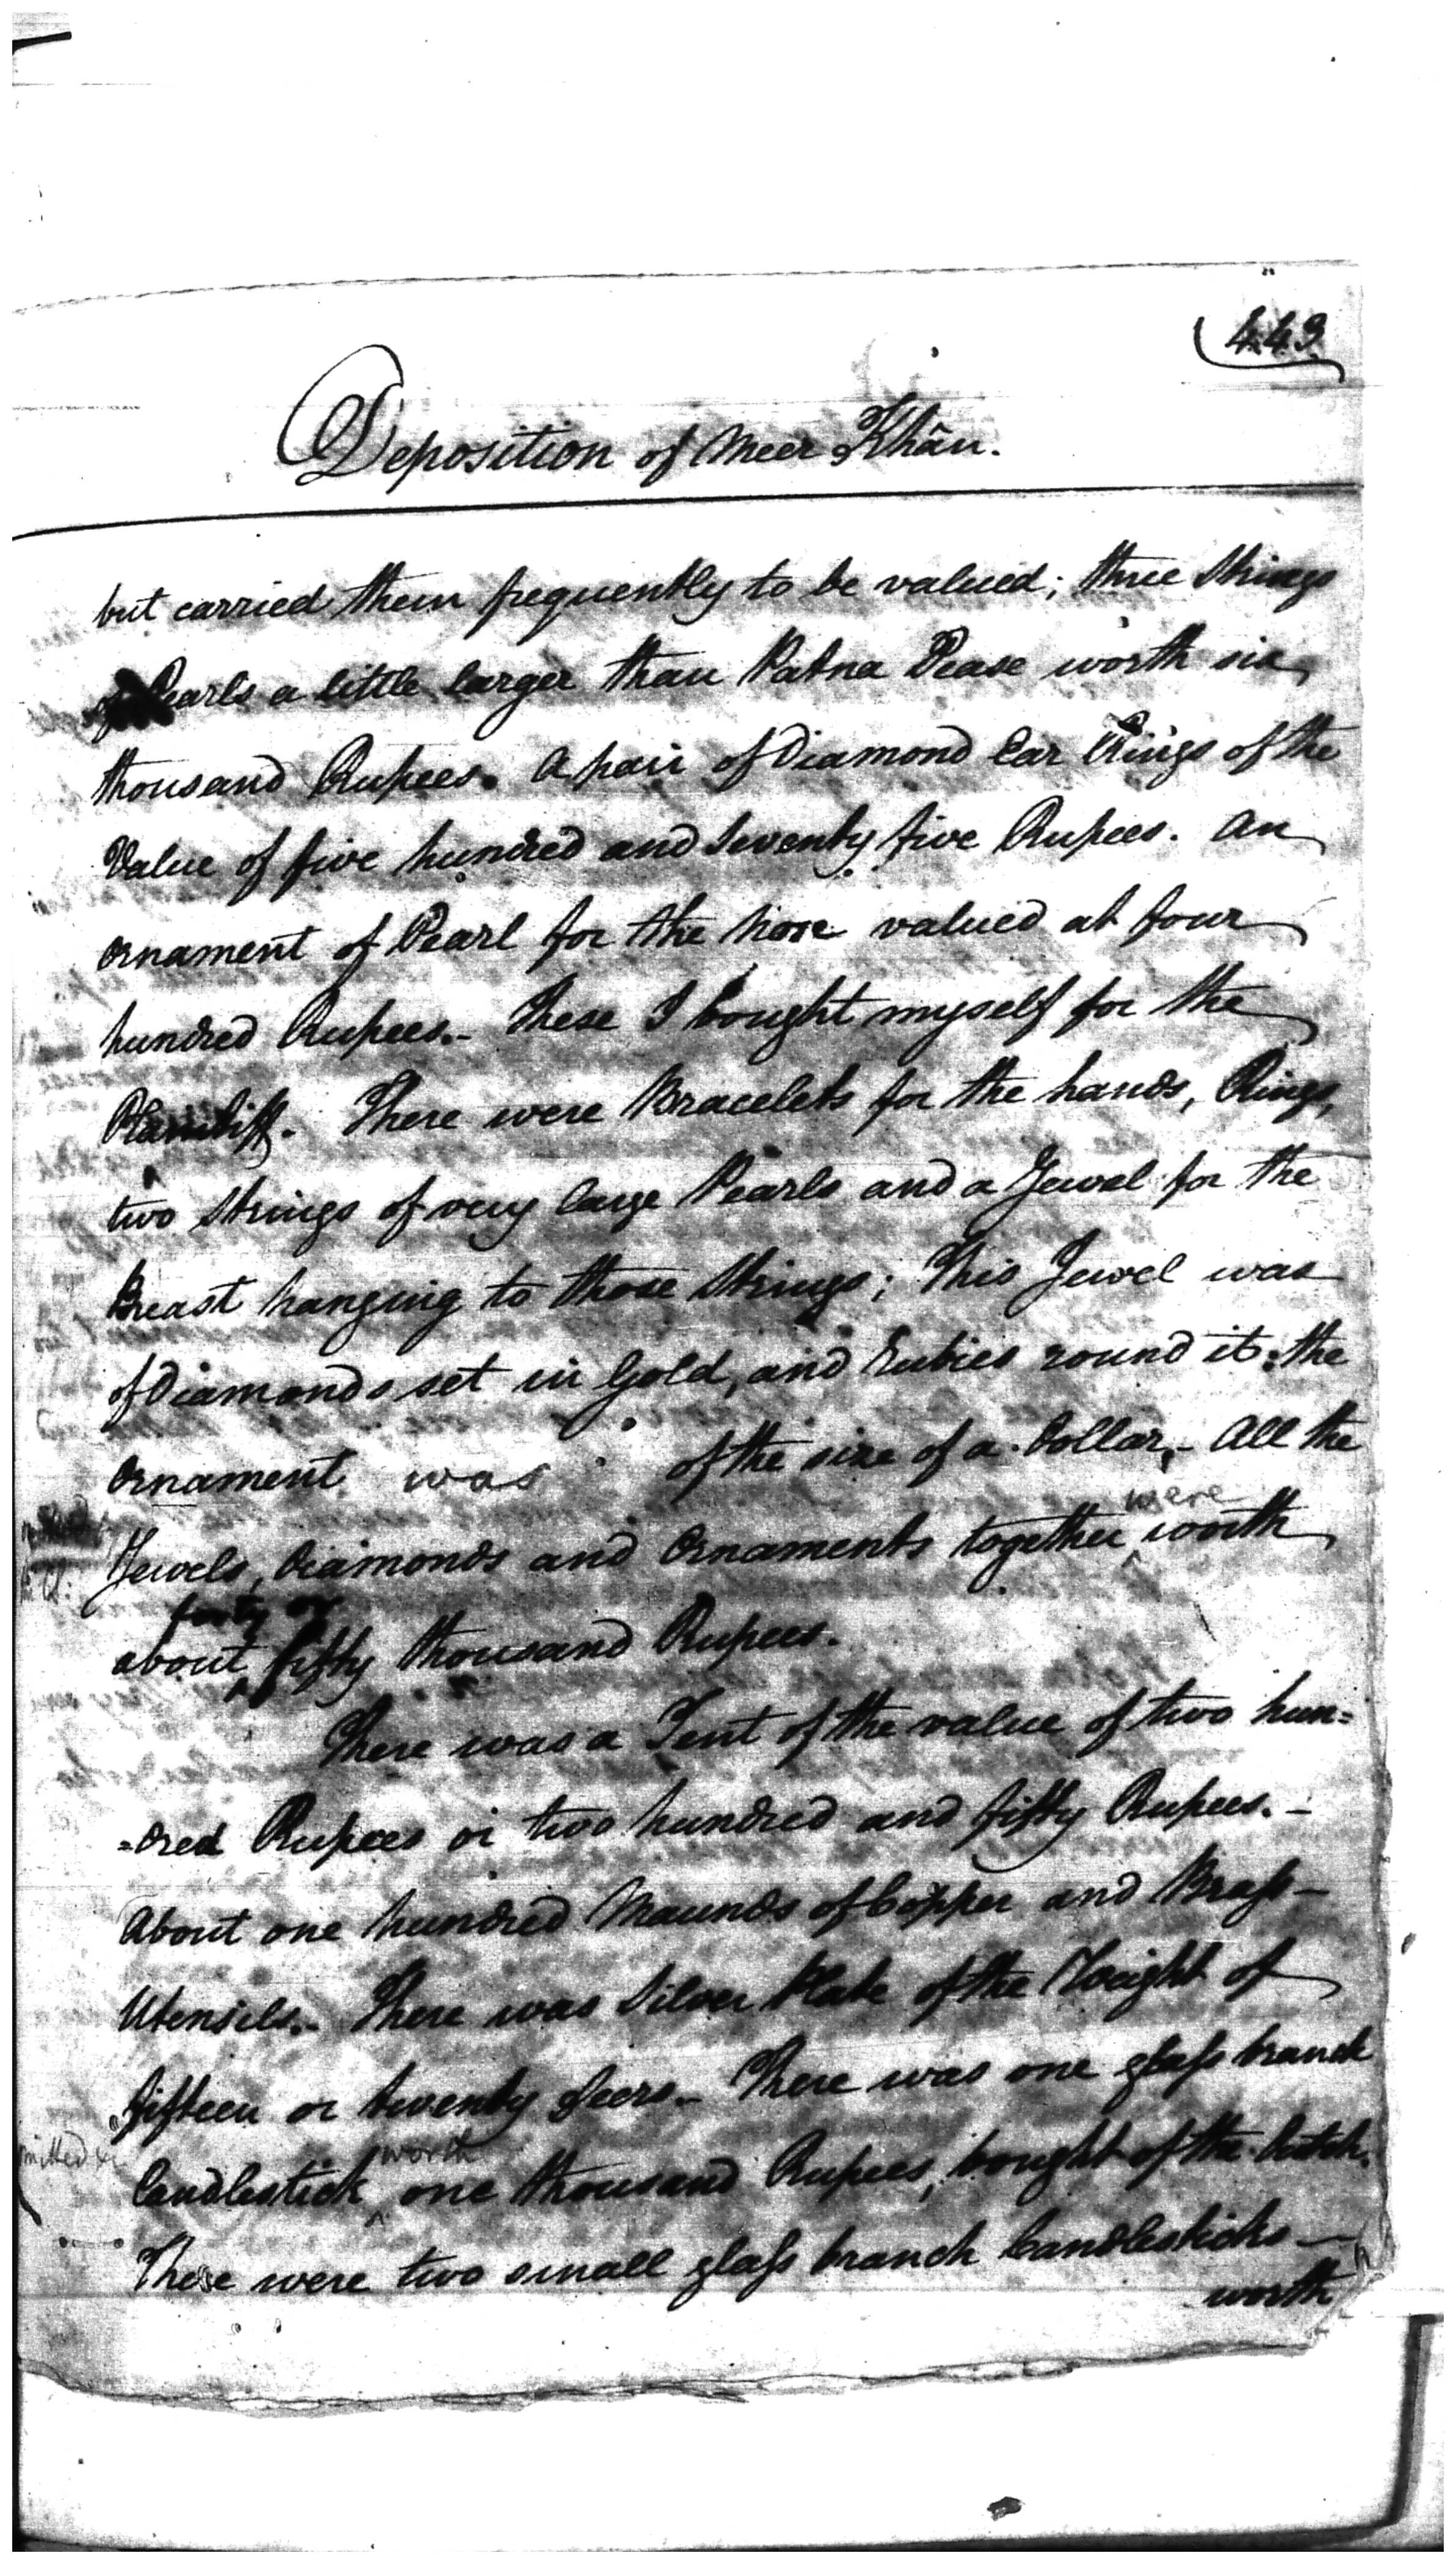 443
Deposition of Meer Khân.
but carried them frequently to be valued; three Strings
of Pearls a little larger than Patna Pease worth six
thousand Rupees. A pair of Diamond Ear Rings of the
Value of five hundred and Seventy five Rupees. An
ornament of Pearl for the nose valued at four
hundred Rupees.- These I bought myself for the
Plaintiff. There were Bracelets for the hands, Rings,
two Strings of very large Pearls and a Jewel for the
Breast hanging to those Strings; This Jewel was
of Diamonds set in Gold, and Rubies round it: the
Ornament was of the size of a Dollar,- All the
were
Jewels, Diamonds and Ornaments together worth
forty or
about fifty thousand Rupees.
There was a Tent of the value of two hun=
=dred Rupees or two hundred and fifty Rupees.-
About one hundred Maunds of Copper and Brass-
Utensils.- There was Silver Plate of the Weight of
fifteen or twenty Seers.- There was one glass branch
worth
Candlestick one thousand Rupees, bought of the Dutch.
There were two small glass branch Candlesticks-
worth